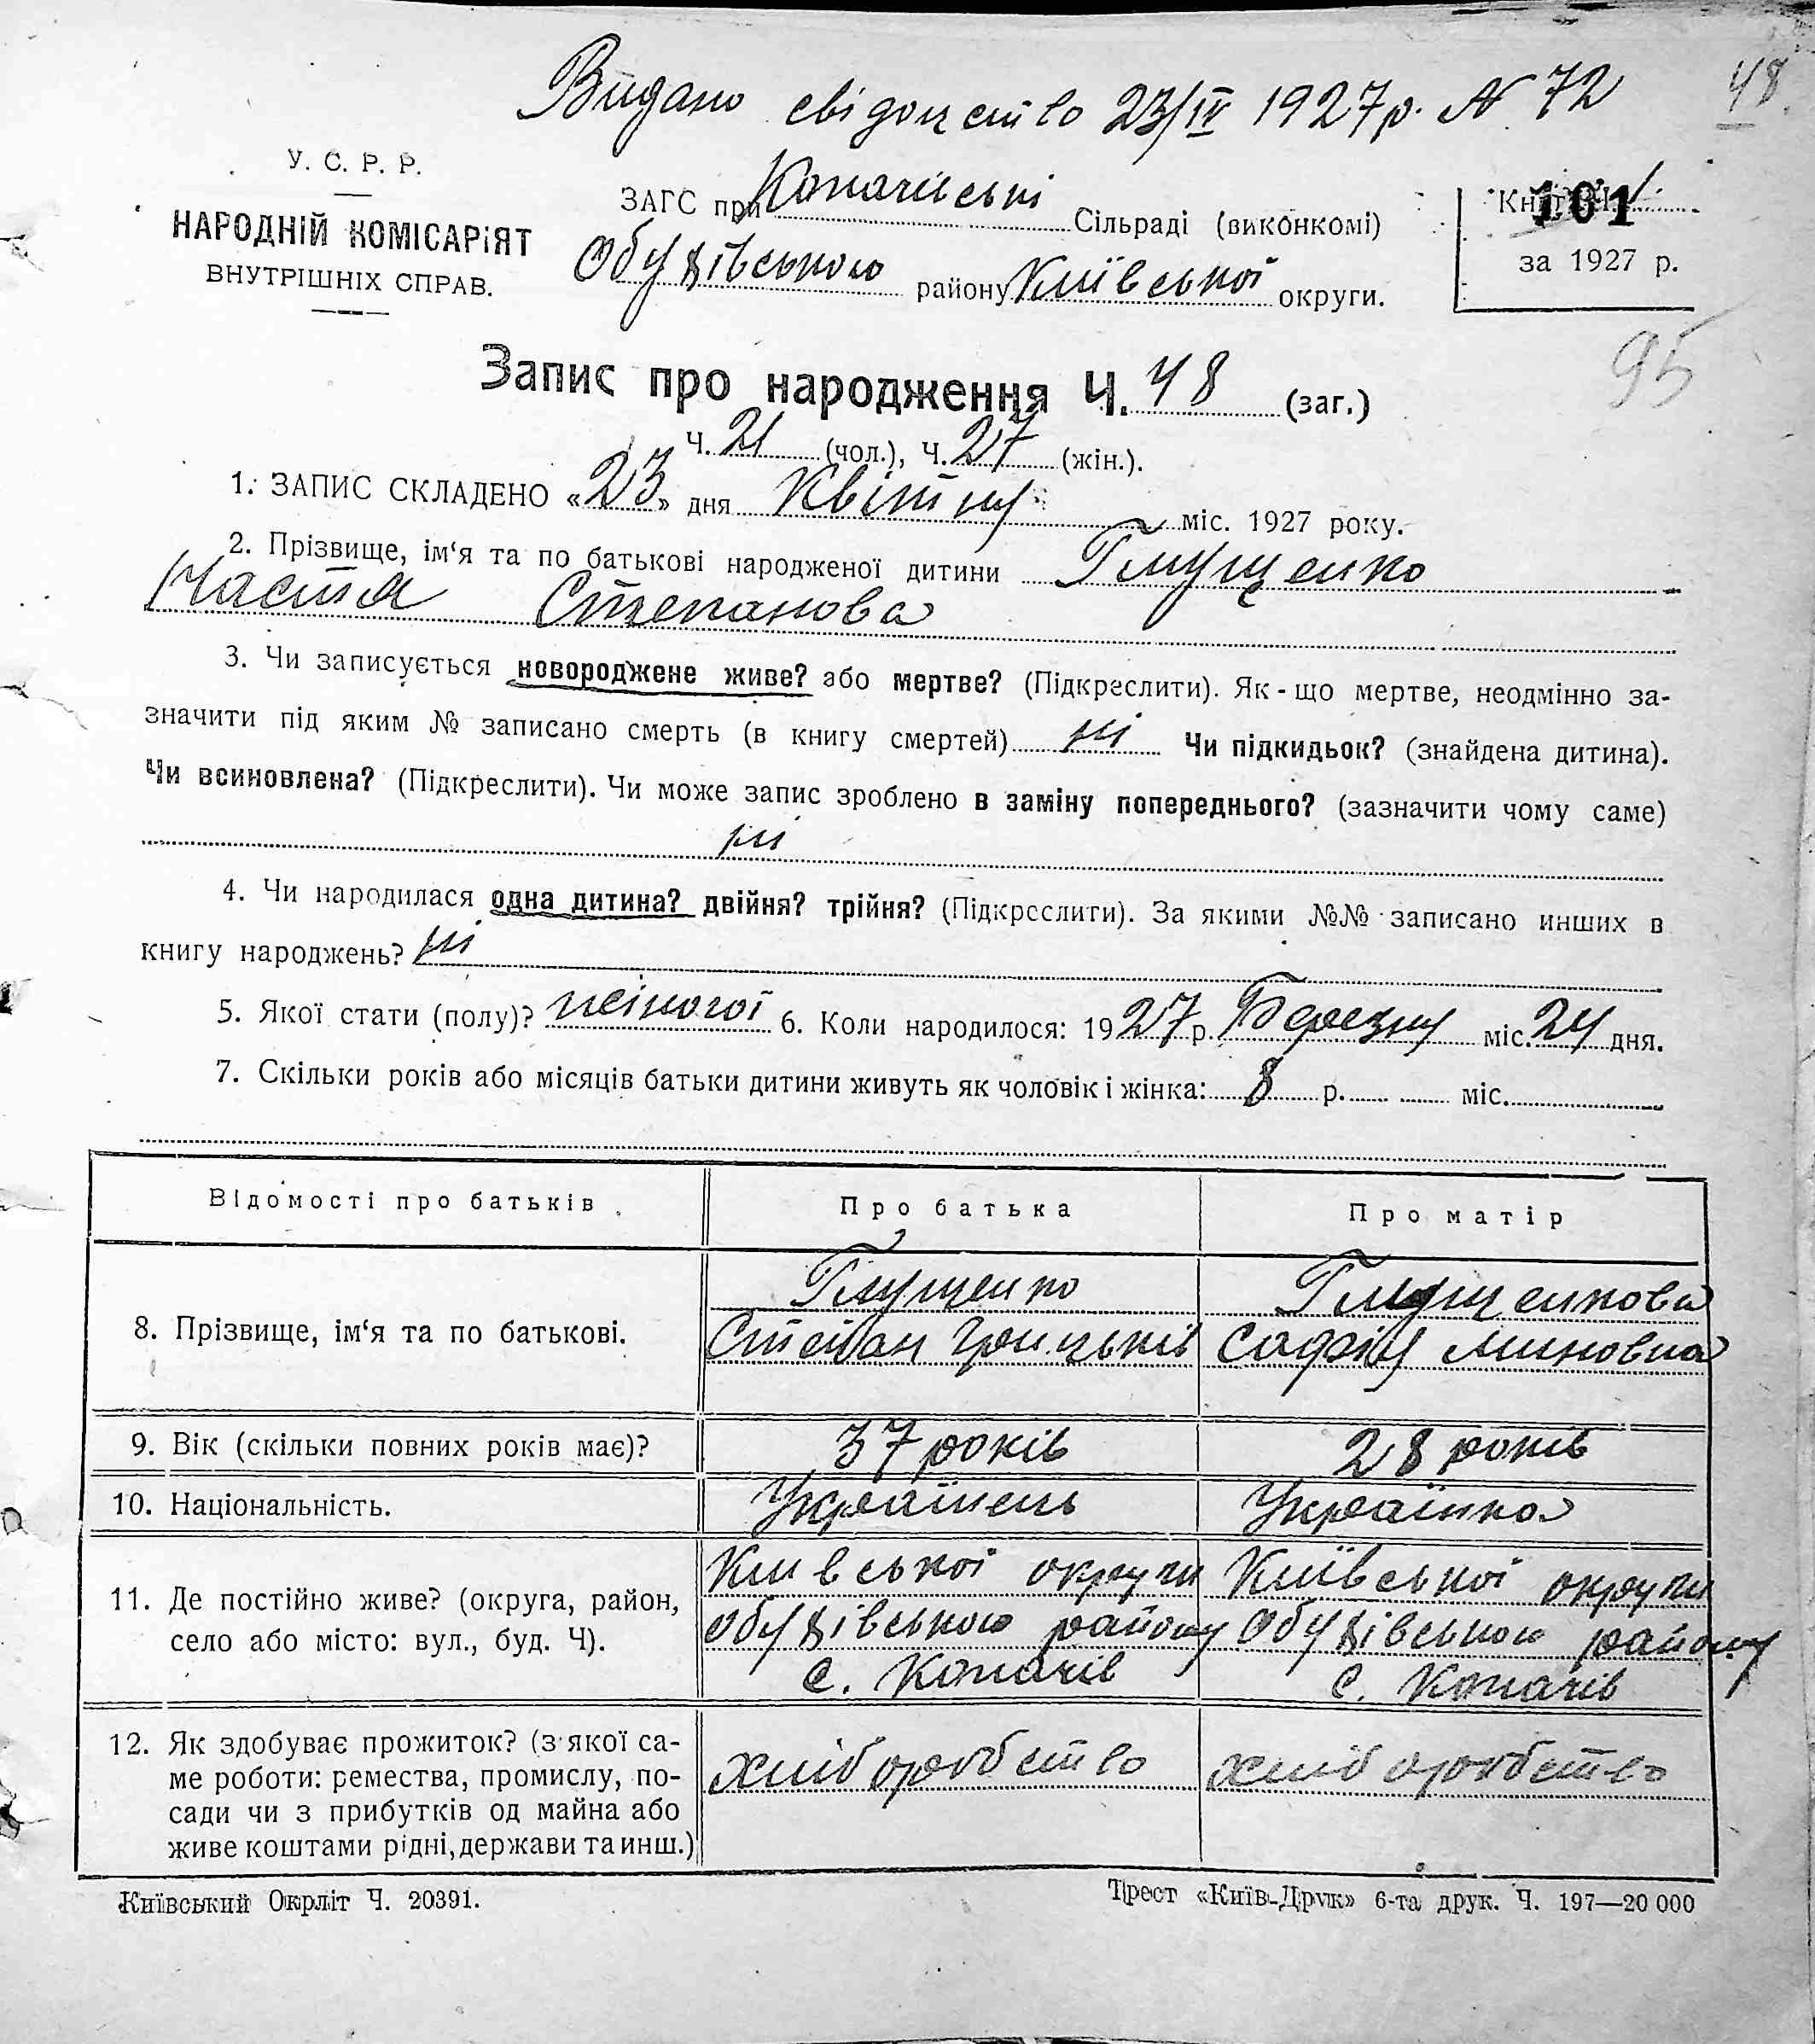 Видано свідоцтво 23/IV 1927р. N 72
48
У. С. Р. Р.
НАРОДНІЙ КОМІСАРІЯТ
ВНУТРІШНІХ СПРАВ.
ЗАГС при Копачівські Сільраді (виконкомі)
Обухівського району Київської округи.
101
за 1927 р.
95
Запис про народження Ч. 48 (заг.)
Ч. 21 (чол.), Ч. 27 (жін.).
1. ЗАПИС СКЛАДЕНО «23» дня Квітну міс. 1927 року.
2. Прізвище, ім‘я та по батькові народженої дитини Глущенко
Настя Степанова
3. Чи записується новороджене живе? або мертве? (Підкреслити). Як-що мертве, неодмінно за-
значити під яким № записано смерть (в книгу смертей) ні Чи підкидьок? (знайдена дитина).
Чи всиновлена? (Підкреслити). Чи може запис зроблено в заміну попереднього? (зазначити чому саме)
ні
4. Чи народилася одна дитина? двійня? трійня? (Підкреслити). За якими №№ записано инших в
книгу народжень? ні
5. Якої стати (полу)? жіночої 6. Коли народилося: 1927 р. Березну міс. 24 дня.
7. Скільки років або місяців батьки дитини живуть як чоловік і жінка: 8 р. міс.
Відомості про батьків Про батька Про матір
8. Прізвище, ім‘я та по батькові.
Глущенко
Степан Грицьків
Глущенкова
Софія Миновна
9. Вік (скільки повних років має)? 37 років 28 років
10. Національність. Українець Українка
11. Де постійно живе? (округа, район,
село або місто: вул., буд. Ч).
Київської округи
Обухівського району
с. Копачів
Київської округи
Обухівського району
с. Копачів
12. Як здобуває прожиток? (з якої са-
ме роботи: ремества, промислу, по-
сади чи з прибутків од майна або
живе коштами рідні, держави та инш.)
хліборобство
хліборобство
Київський Окрліт Ч. 20391.
Трест «Київ-Друк» 6-та друк. Ч. 197—20 000